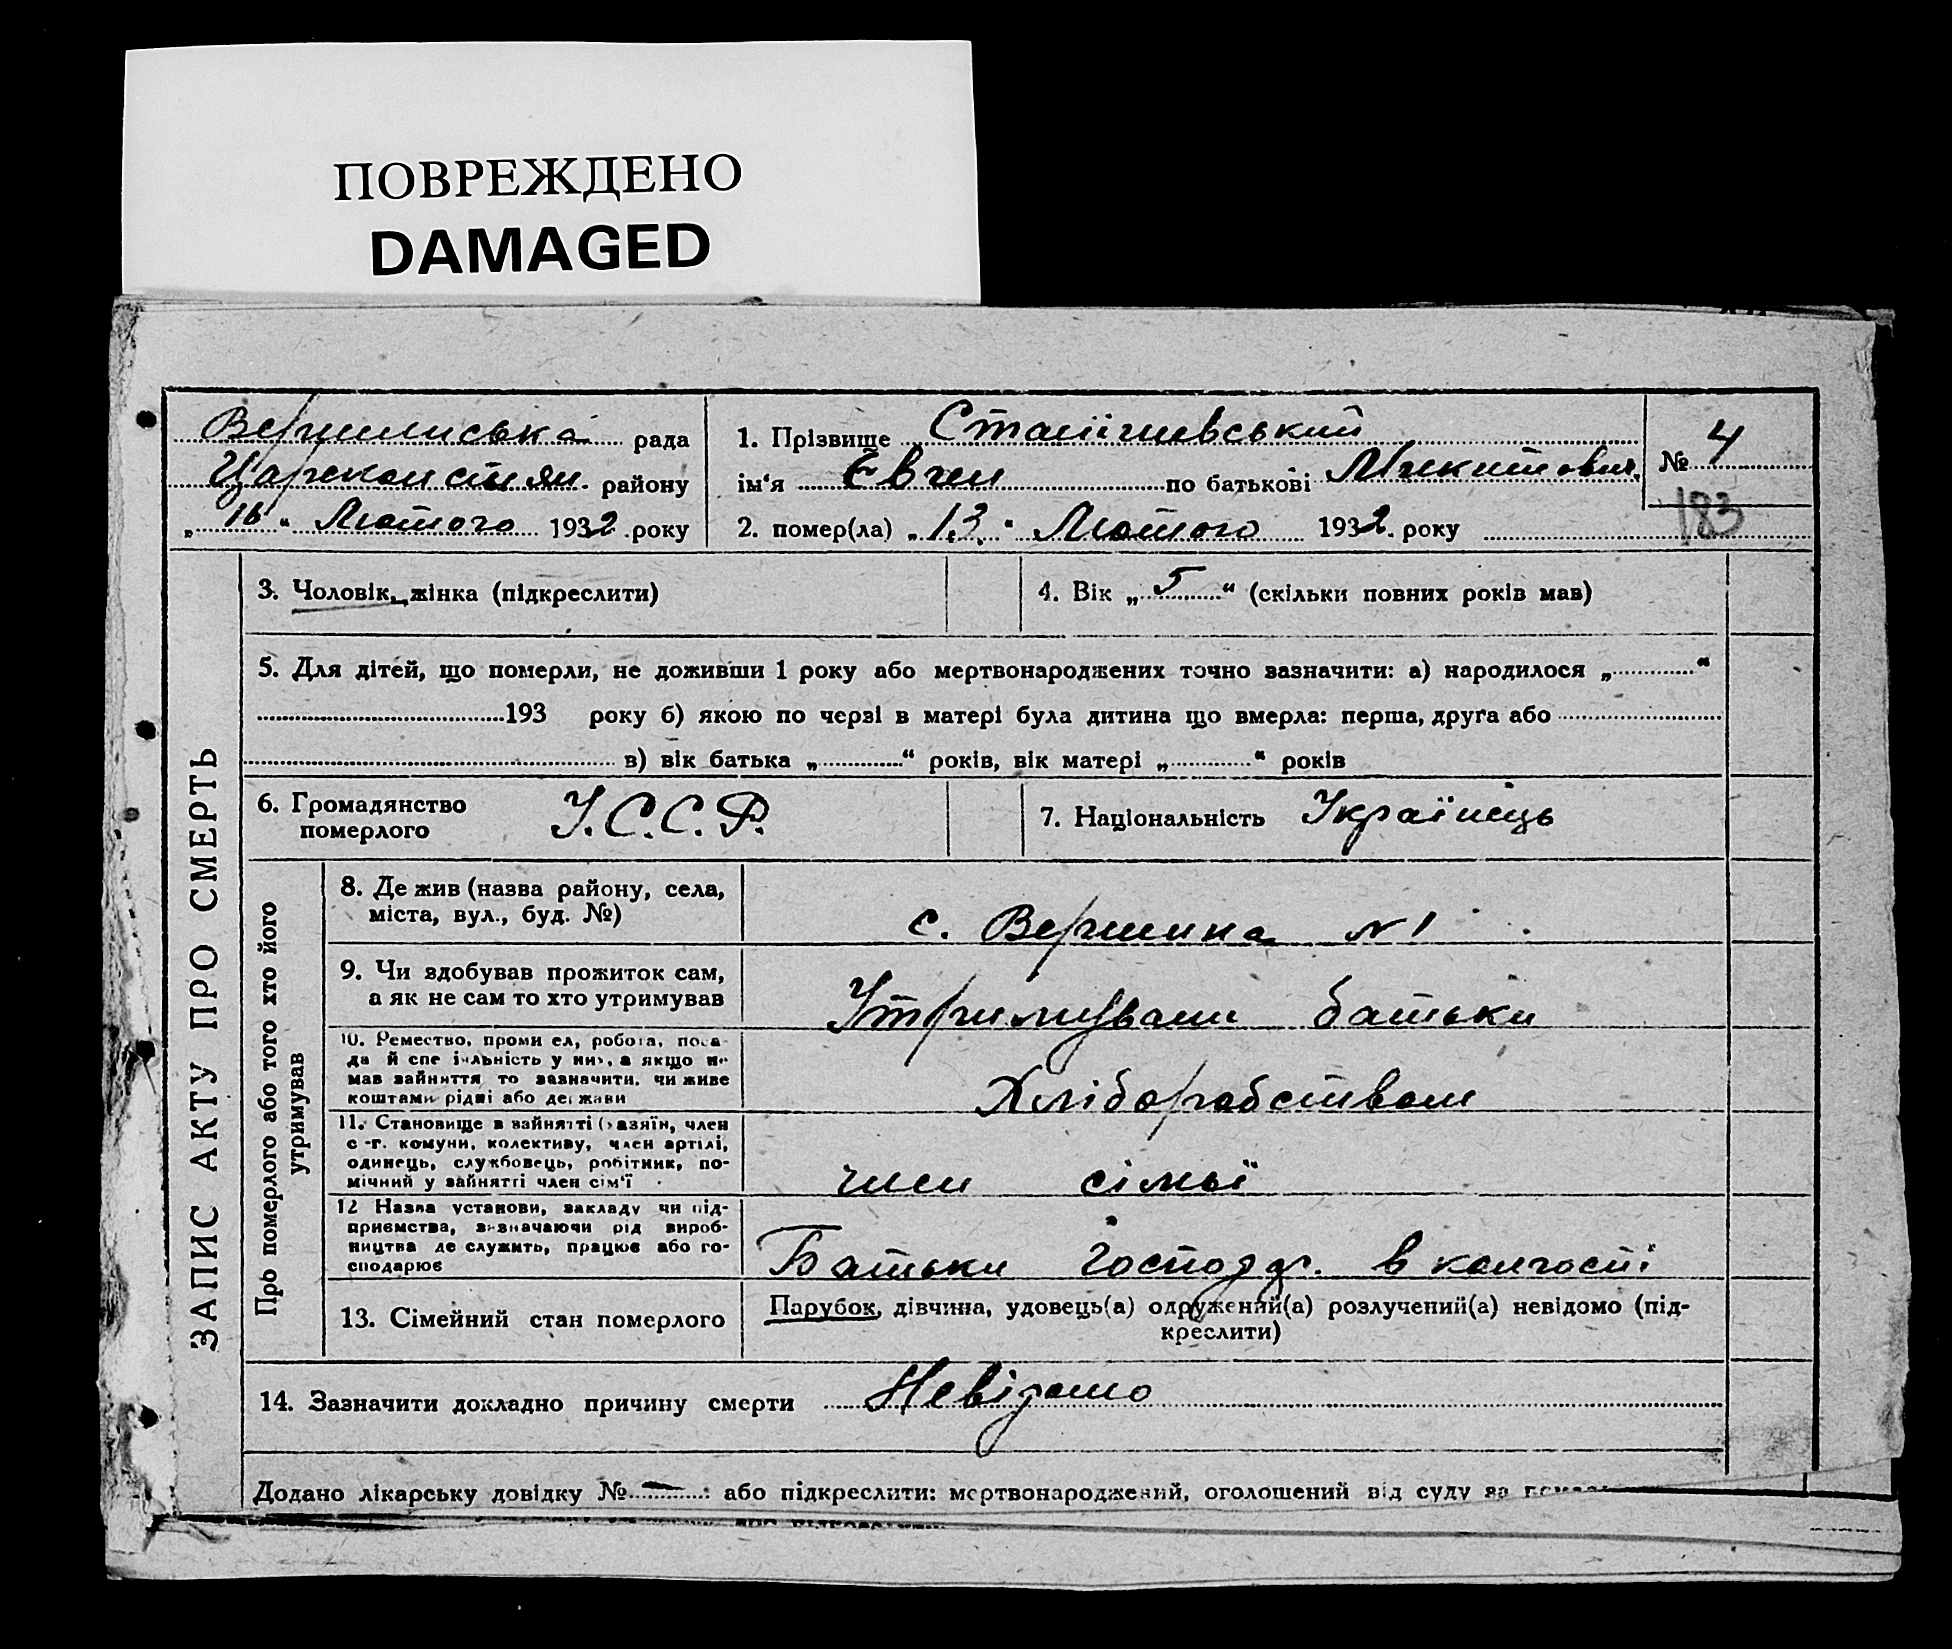 ПОВРЕЖДЕНО
DAMAGED
Вершинська рада
Цареконстян. району
„16“ Лютого 1932 року
1. Прізвище Станішевський
ім‘я Євген по батькові Микитович
2. помер(ла) „13“ Лютого 1932. року
№ 4
183
ЗАПИС АКТУ ПРО СМЕРТЬ
3. Чоловік, жінка (підкреслити)
4. Вік „5“ (скільки повних років мав)
5. Для дітей, що померли, не доживши 1 року або мертвонароджених точно зазначити: а) народилося „ “
193 року б) якою по черзі в матері була дитина що вмерла: перша, друга або
в) вік батька „ “ років, вік матері „ “ років
6. Громадянство
померлого
У.С.С.Р.
7. Національність Українець
Про померлого або того хто його
утримував
8. Де жив (назва району, села,
міста, вул., буд. №)
с. Вершина N1
9. Чи здобував прожиток сам,
а як не сам то хто утримував
Утримували батьки
10. Ремество, проми ел, робота, поса-
да й спе іяльність у ни., а якщо не
мав зайняття то зазначити, чи живе
коштами рідні або держави
Хліборобством
11. Становище в зайнятті (хазяїн, член
с.-г. комуни, колективу, член артілі,
одинець, службовець, робітник, по-
мічний у зайнятті член сім‘ї
член сімьї
12 Назва установи, закладу чи під-
приємства, визначаючи рід вироб-
ництва де служить, працює або го-
сподарює
Батьки господар. в колгоспі
13. Сімейний стан померлого
Парубок, дівчина, удовець(а) одружений(а) розлучений(а) невідомо (під-
креслити)
14. Зазначити докладно причину смерти Невідомо
Додано лікарську довідку № — : або підкреслити: мертвонароджений, оголошений від суду за